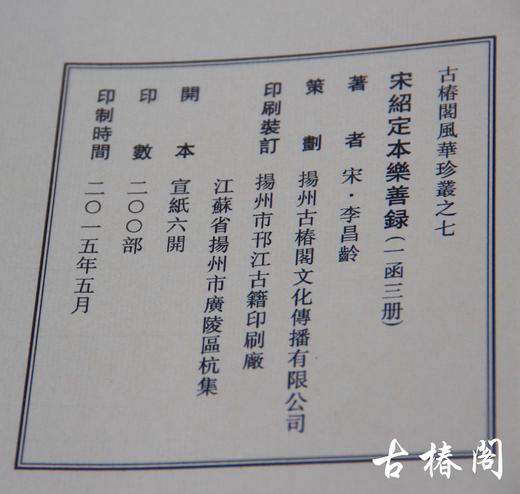 古椿閣風華珍叢之七
宋紹定本樂善録(一函三册)
著者 宋·李昌齡
策劃 揚州古椿閣文化傳播有限公司
印刷裝訂 揚州市邗江古籍印刷廠
江蘇省揚州市廣陵區杭集
開本 宣紙六開
印數 二〇〇部
印制時間 二〇一五年五月
古椿閣